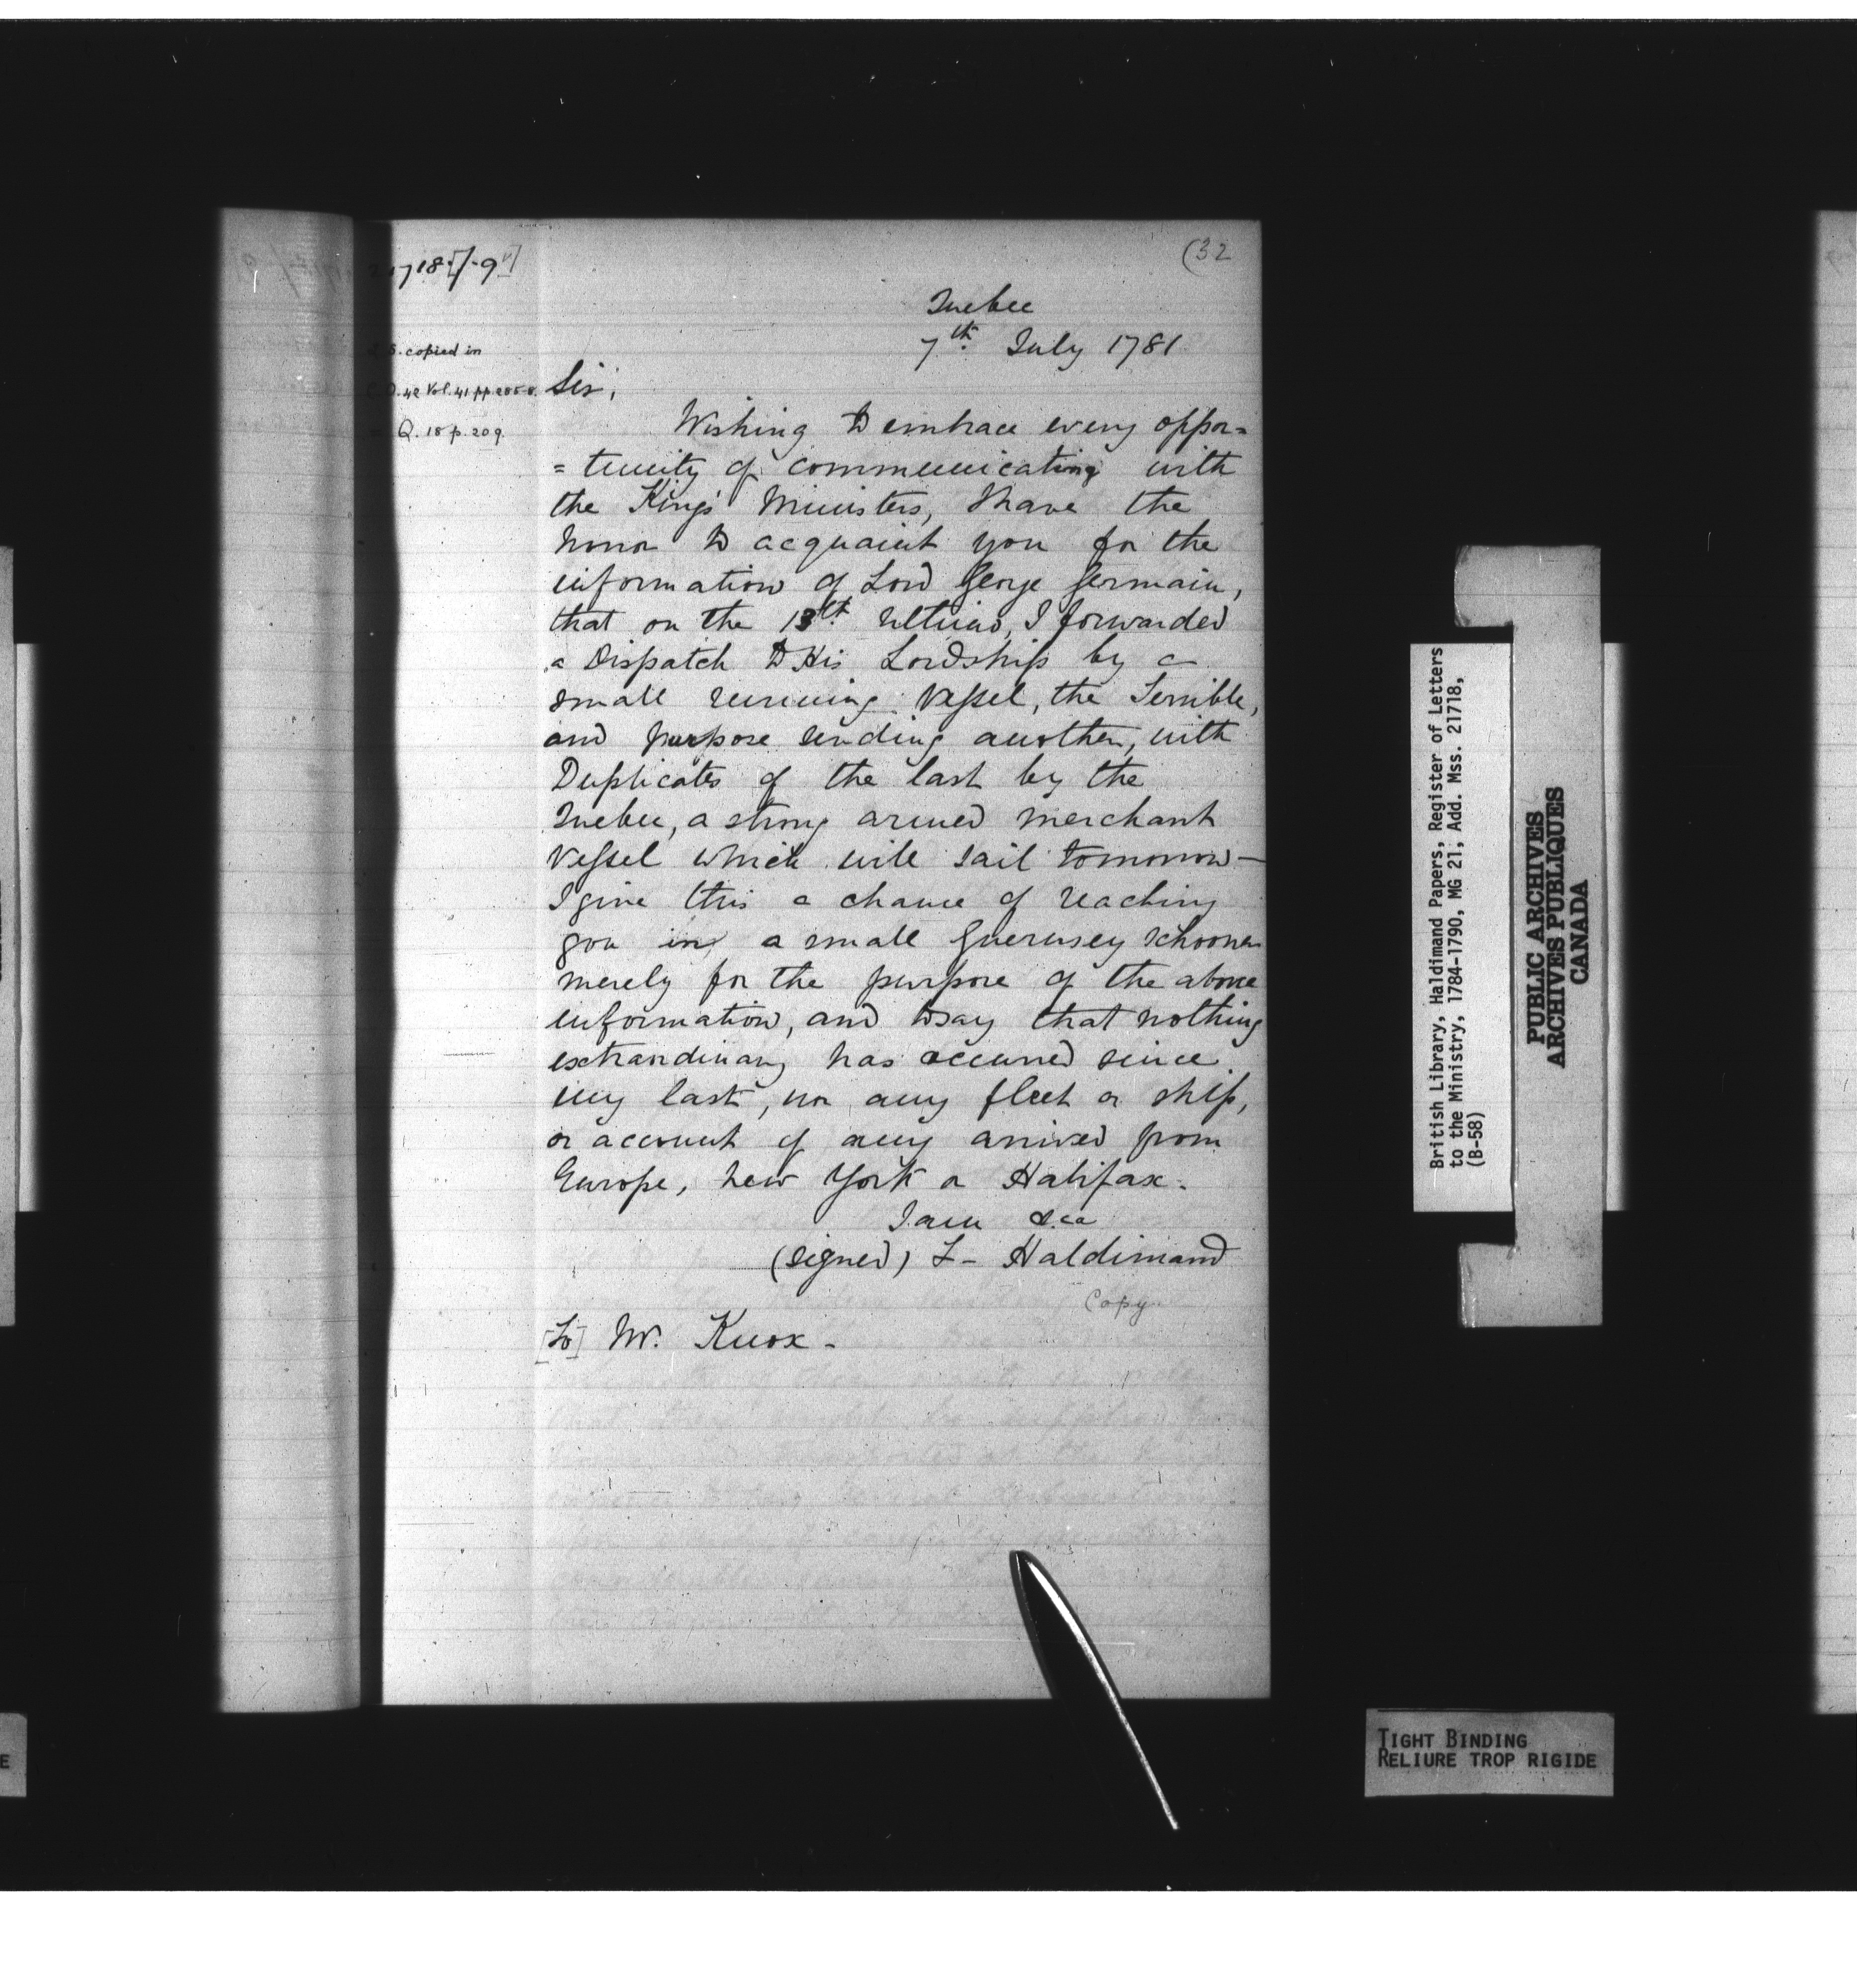 (32
Quebec
7th July 1781
copied in
42 Vol. 41 pp.
Q. 18 p. 209.
Sir,
Wishing to embrace every oppor=
=tunity of communicating with
the King's Ministers, I have the
honor to acquaint you for the
information of Lord George Germain,
that on the 13th ultimo, I forwarded
a Dispatch to His Lordship by a
small running Vessel, the Terrible,
and purpose sending another, with
Duplicates of the last by the
Quebec, a strong armed merchant
Vessel which will sail tomorrow—
I give this a chance of reaching
you in a small Guernsey schooner
merely for the purpose of the above
information, and to say that nothing
extraordinary has occurred since
my last, nor any fleet or ship,
or account of any arrived from
Europe, New York or Halifax.
I am &ca
(signed) F- Haldimand
Copy
[To] Mr. Knox-
British Library, Haldimand Papers, Register of Letters
to the Ministry, 1784-1790, MG 21, Add. Mss. 21718,
(B-58)
PUBLIC ARCHIVES
ARCHIVES PUBLIQUES
CANADA
TIGHT BINDING
RELIURE TROP RIGIDE